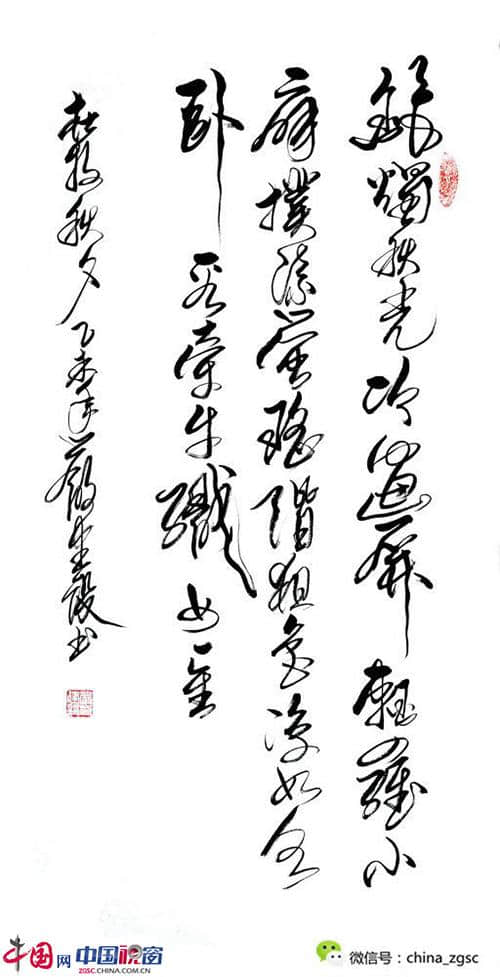 銀燭秋光冷畫屏輕羅小
扇撲流螢瑤階夜色涼如水
卧看牽牛織女星
杜牧秋夕乙未年书
中国网 中国视窗
ZGSC.CHINA.COM.CN
微信号：china_zgsc